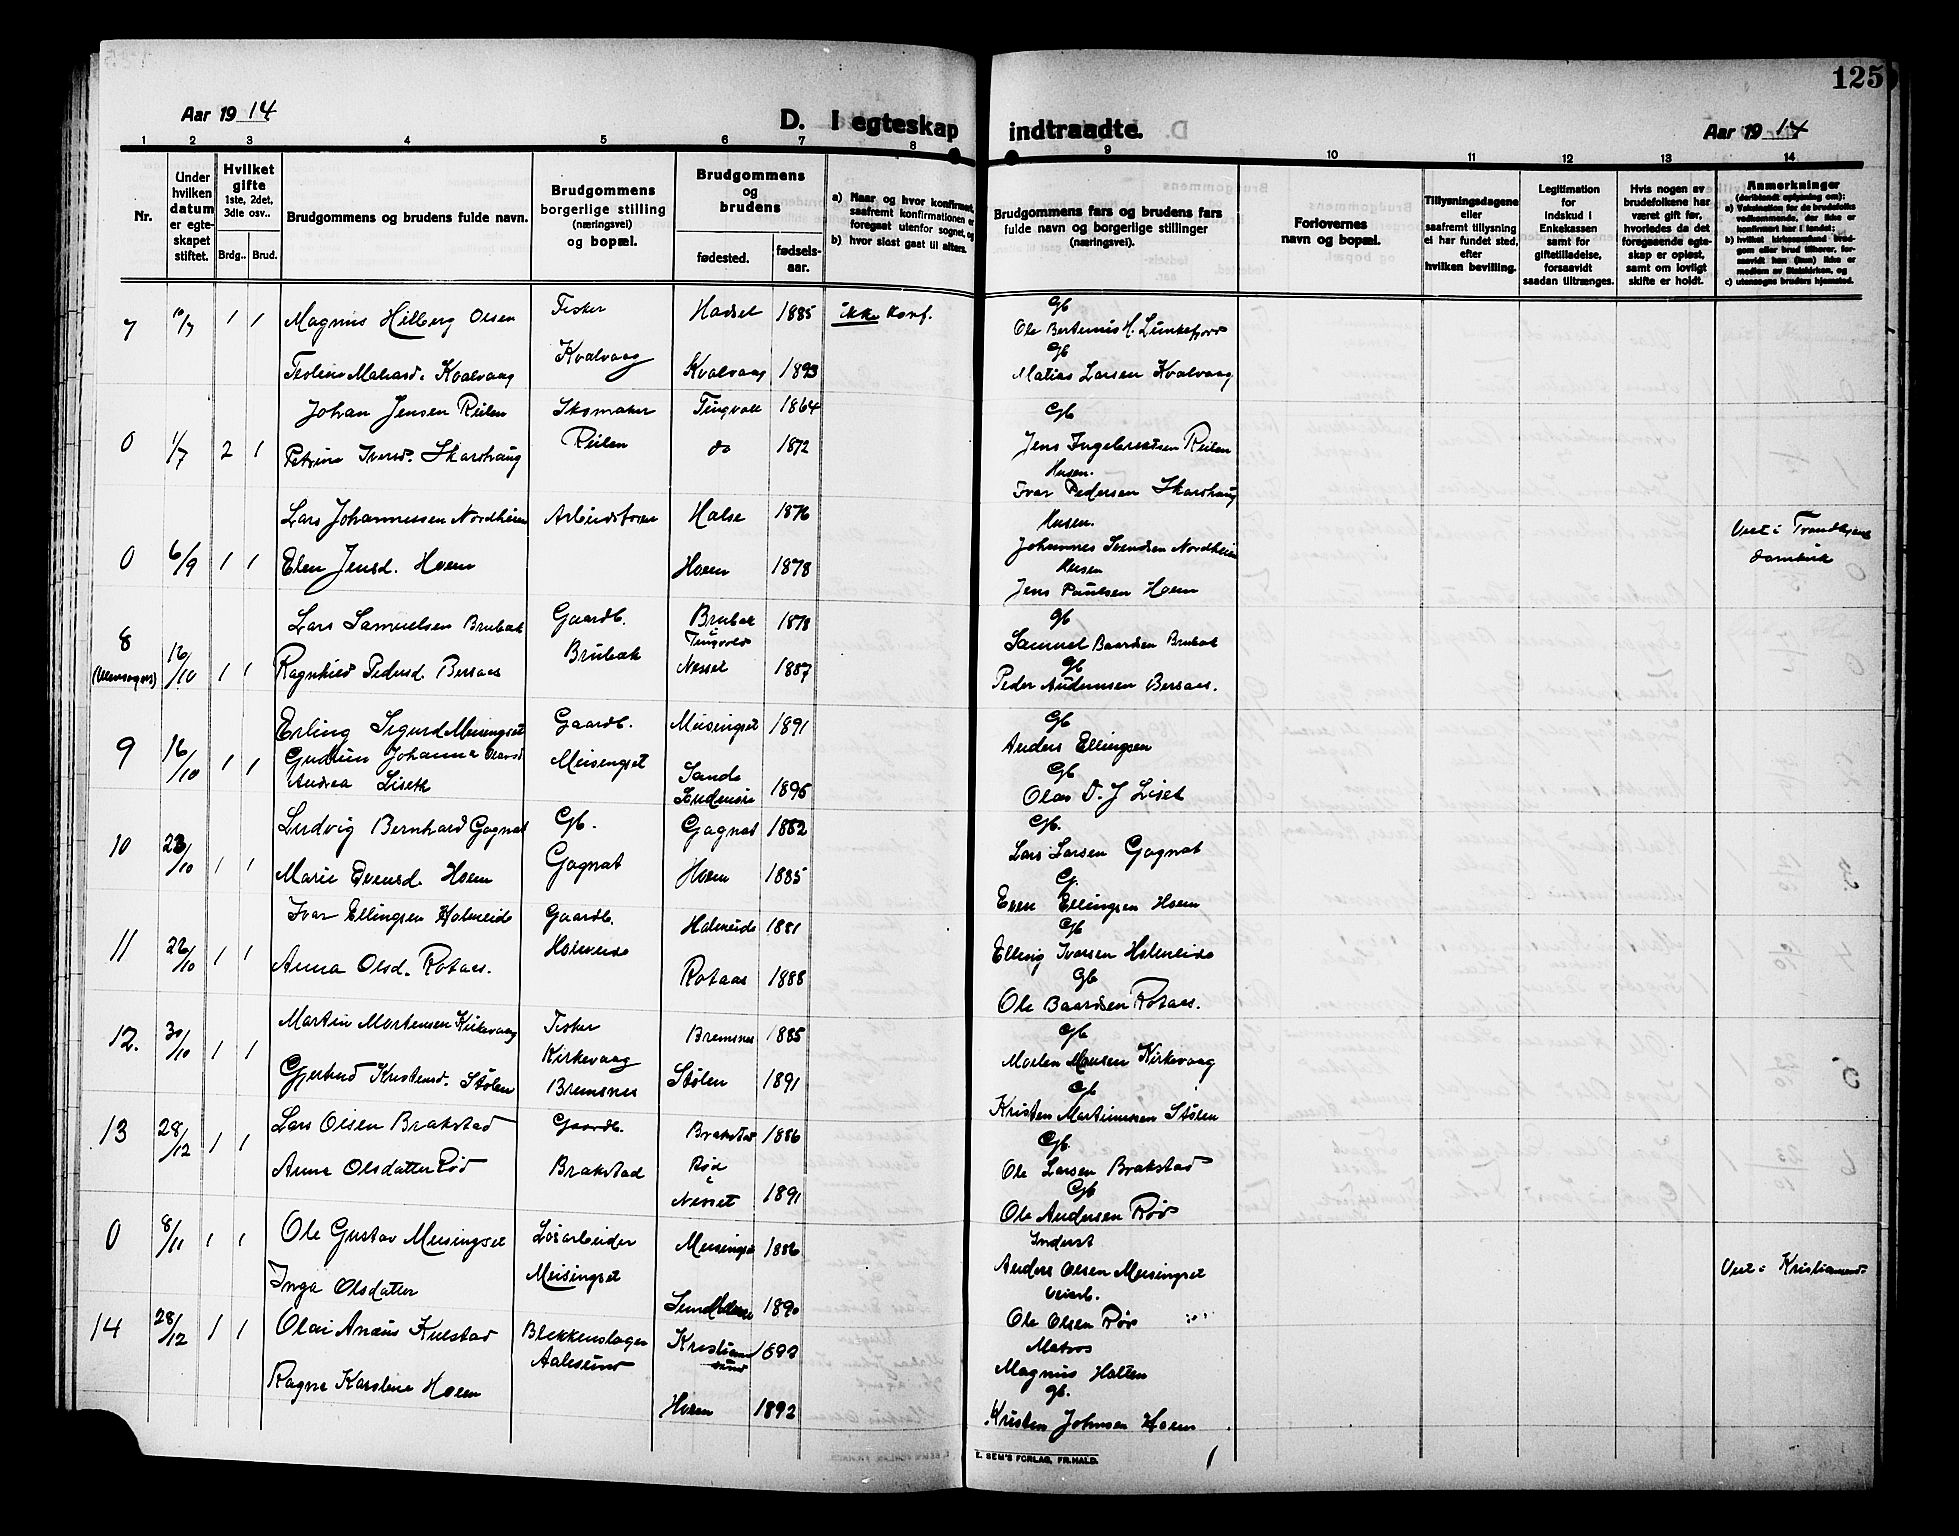 125
Aar 1914
D. I egteskap indtraadte.
Aar 1914
1 2 3 4 5 6 7 8 9 10 11 12 13 14
Nr.
Under hvilken datum er egteskapet stiftet.
Hvilket gifte 1ste, 2det, 3die osv..
Brdg.. Brud.
Brudgommens og brudens fulde navn.
Brudgommens borgerlige stilling (næringsvei) og bopæl.
Brudgommens og brudens
fødested. fødselsaar.
a) Naar og hvor konfirmert, saafremt konfirmationen er foregaat utenfor sognet, og
b) hvor sidst gaat til alters.
Brudgommens fars og brudens fars fulde navn og borgerlige stillinger (næringsvei).
Forlovernes navn og bopæl.
Tillysningsdagene eller saafremt tillysning ei har fundet sted, efter hvilken bevilling.
Legitimation for Indskud i Enkekassen samt for giftetilladelse, forsaavidt saadan tiltrænges.
Hvis nogen av brudefolkene har været gift før, hvorledes da det foregaaende egteskap er opløst, samt om lovligt skifte er holdt.
Anmerkninger
7 10/7 1 1 Magnus Hilberg Olsen Fisker Hadsel 1885 ikke konf. Gb
Ole Bertinus H.
Kvalvaag Kvalvaag 1893 Gb
Kvalvaag Matias Larsen Kvalvaag
0 1/7 2 1 Johan Jensen Reilen Skomaker Tingvoll 1864 Gb
Petrine Iversd. Skarshaug Reilen do 1872 Jens Ingebrigtsen Reilen
Husm.
Ivar Pedersen Skarshaug
0 6/9 1 1 Lars Johannessen Nordheim Halse 1876 Husm.
Johannes Svendsen Nordheim
Elen Jensd. Hoem Hoem 1878 Husm
Jens Paulsen Hoem
Viet i Trondhjems
Domkirk
8 16/10 1 1 Lars Samuelsen Brubak Gaardb. Brubak 1878 Gb
Brubak Tingvold Samuel Baardsen Brubak
Ragnhild Pedersd. Bersaas Nesset 1887 Gb
Peder Audunsen Bersaas.
9 16/10 1 1 Erling Sigurd Meisingset Gaardb. Meisingset 1891 Gb
Gudrun Johanna Olavsd Meisingset Anders Ellingsen
Andrea Liseth Sande 1895 Gb
Olav O. J. Liset
10 23/10 1 1 Ludvig Bernhard Gagnat Gb. Gagnat 1882 Gb.
Gagnat Lars Larsen Gagnat
Marie Evensd. Hoem Hoem 1885 G.
Even Ellingsen Hoem
11 22/10 1 1 Ivar Ellingsen Holmeide Gaardb. Holmeide 1881 Gb
Holmeide Elling Iversen Holmeide
Anna Olsd. Rotaas. Rotaas 1888 Gb
Ole Baardsen Rotaas.
12. 30/10 1 1 Martin Mortensen Kirkevaag Fisker Bremsnes 1885 Gb
Kirkevaag Morten Monsen Kirkevaag
Gjertrud Kristensd. Stølen Bremsnes Stølen 1891 Gb
Kristen Martinussen Stølen
13 28/12 1 1 Lars Olsen Brakstad Gaardb. Brakstad 1886 Gb.
Ole Larsen Brakstad
Anne Olsdatter Rød Brakstad Rød i Nesset 1891 Gb
Ole Andersen Rød
0 8/11 1 1 Ole Gustav Meisingset Løsarbeider Meisingset 1886 Inderst
Meisingset Anders Olsen Meisingset
Inga Olsdatter 1890 Veiarb.
Ole Olsen Rød
Viet i Kristiansund
14 28/12 1 1 Olai Anæus Kulstad Blekkenslager Kristiansund Matros
Aalesund Magnus Holten
Ragne Karoline Hoem Hoem 1892 Gb.
Kristen Johnsen Hoem
E. SEM'S FORLAG, FR.HALD.